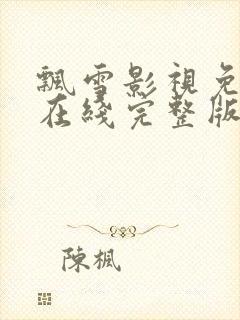 飄雪影視免
在綫完整版
陳楓